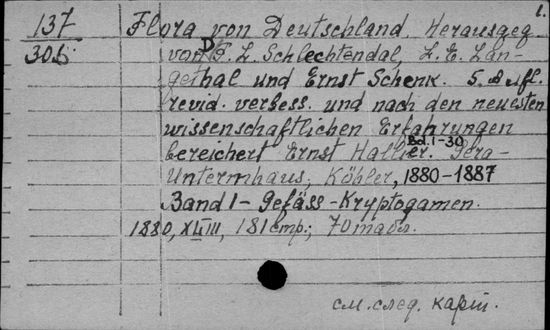 1.
137
306
Flora von Deutschland. Herausgeg.
von D F. L. Schlechtendal, L. E. Lan-
gethal und Ernst Schenk. 5. Aufl.
revid. verbess. und nach den neuesten
wissenschaftlichen Erfahrungen
bereichert Ernst Hallier. Bd. 1-30 Gera-
Untermhaus, Köhler, 1880-1887
Band 1 - Gefäss-Kryptogamen.
1880, 181 стр.; 70 табл.
см. след. карт.